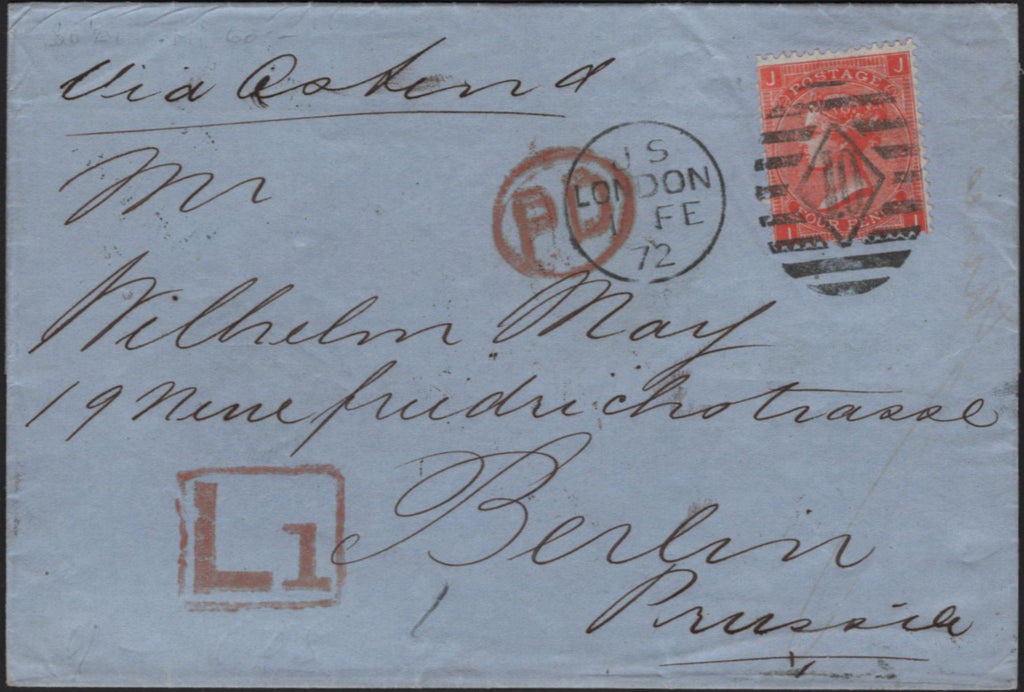 Via Ostend
Mr
Wilhelm May
19 Neue friedrichstrasse
Berlin
Prussia
PD
J S
LONDON
1 FE
72
L1
J J
POSTAGE
FOUR PENCE
10